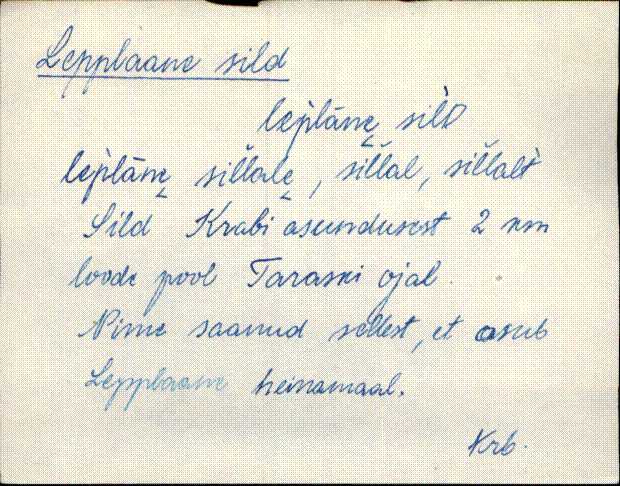 Lepplaane sild
lep̀lāne̬ silD
lep̀lāne̬ sil̆lale̬, sil̆lal, sil̆lalt
Sild Krabi asundusest 2 km
loode pool Taraski ojal.
Nime saanud sellest, et asub
Lepplaane heinamaal.
Krb.